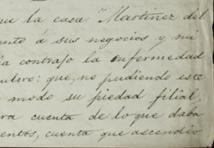 que la casa "Martinez del
anto á sus negocios y mi
ia contrajo la enfermedad
ulcro: que, no pudiendo este
modo su piedad filial,
ra cuenta de lo que daba
entos, cuenta que ascendió